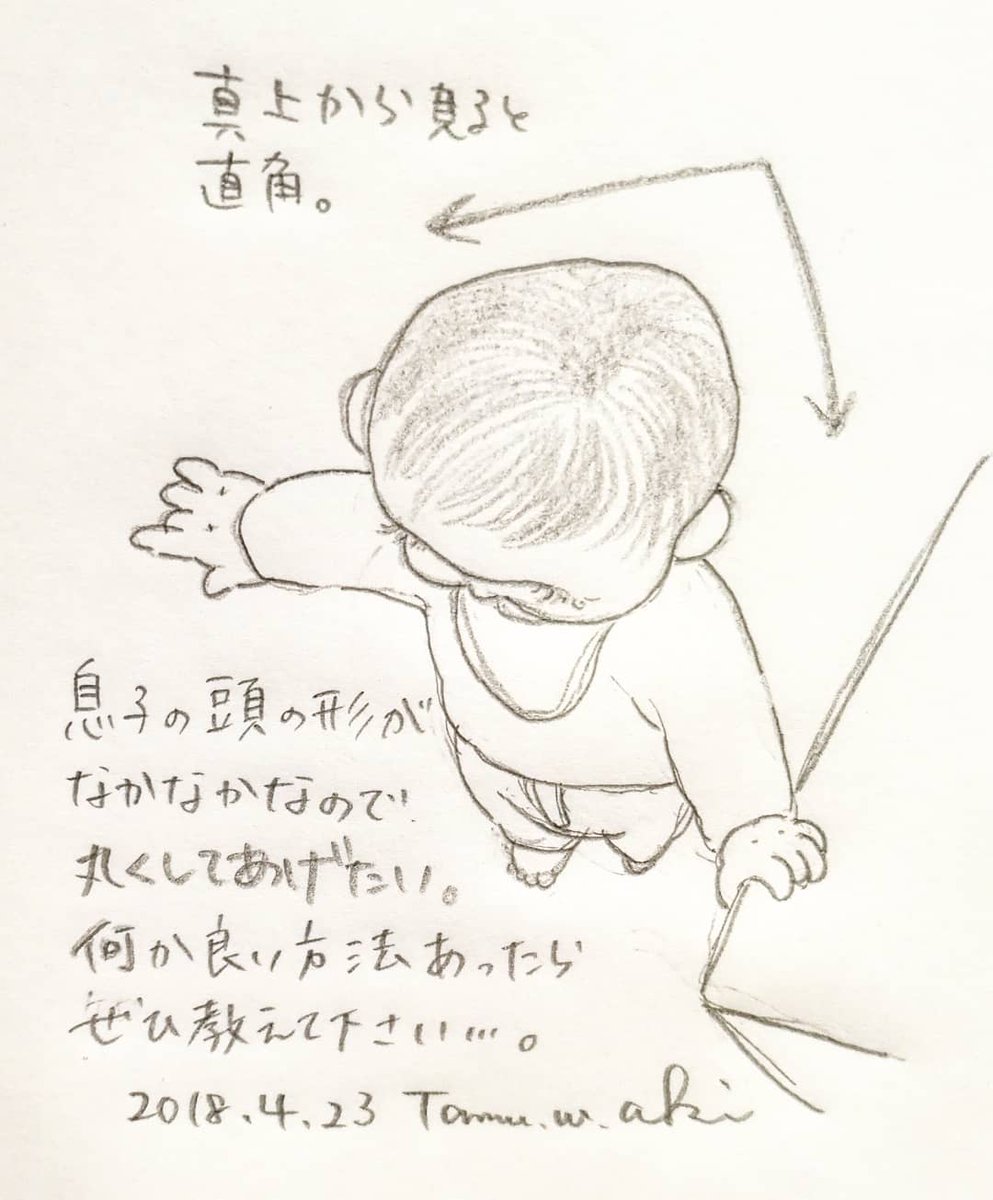 真上から見ると
直角。
息子の頭の形が
なかなかなので
丸くしてあげたい。
何か良い方法あったら
ぜひ教えて下さい…。
2018.4.23 Tamu.w.aki